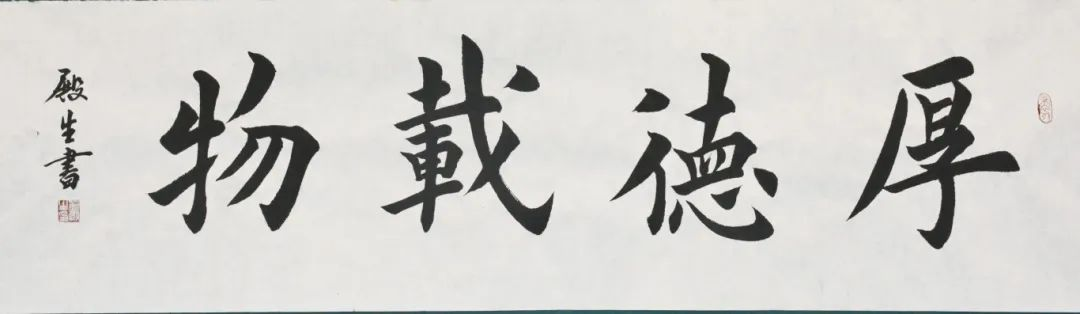 厚德載物
殿生書